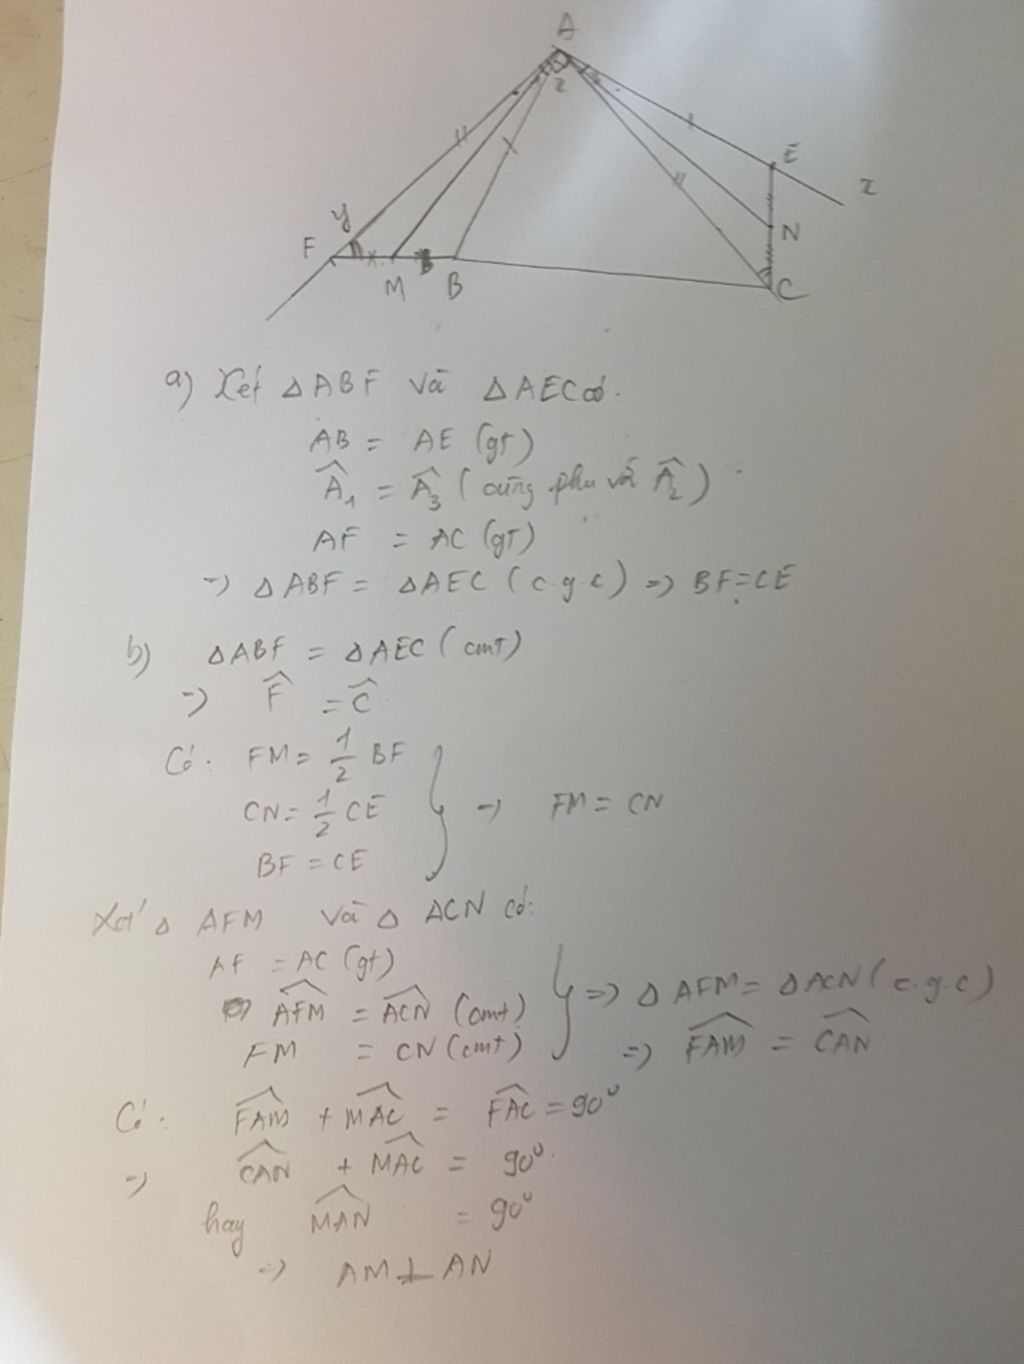 A
2
E
x
y
F
N
M
B
C
a) Xét ΔABF và ΔAEC có:
AB = AE (gt)
Â₁ = Â₃ (cùng phụ với Â₂)
AF = AC (gt)
=> ΔABF = ΔAEC (c.g.c) => BF=CE
b) ΔABF = ΔAEC (cmt)
=> F̂ = Ĉ
Có: FM = 1/2 BF
CN = 1/2 CE } => FM = CN
BF = CE
Xét Δ AFM và Δ ACN có:
AF = AC (gt)
AFM^ = ACN^ (cmt) } => Δ AFM = Δ ACN (c.g.c)
FM = CN (cmt) => FAM^ = CAN^
Có: FAM^ + MAC^ = FAC^ = 90°
=> CAN^ + MAC^ = 90°
hay MAN^ = 90°
=> AM ⊥ AN